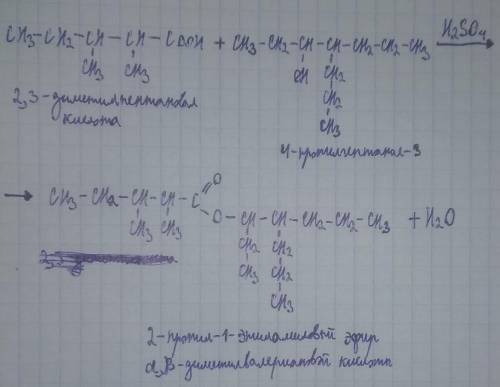 CH3-CH2-CH-CH-COOH + CH3-CH2-CH-CH-CH2-CH2-CH3 H2SO4
CH3 CH3 OH CH2
CH2
CH3
2,3-диметилпентановая
кислота
4-пропилгептанол-3
→ CH3-CH2-CH-CH-C O
CH3 CH3 O-CH-CH-CH2-CH2-CH3 + H2O
CH2 CH2
CH3 CH2
CH3
2-пропил-1-этиламиловый эфир
α,β-диметилвалериановой кислоты